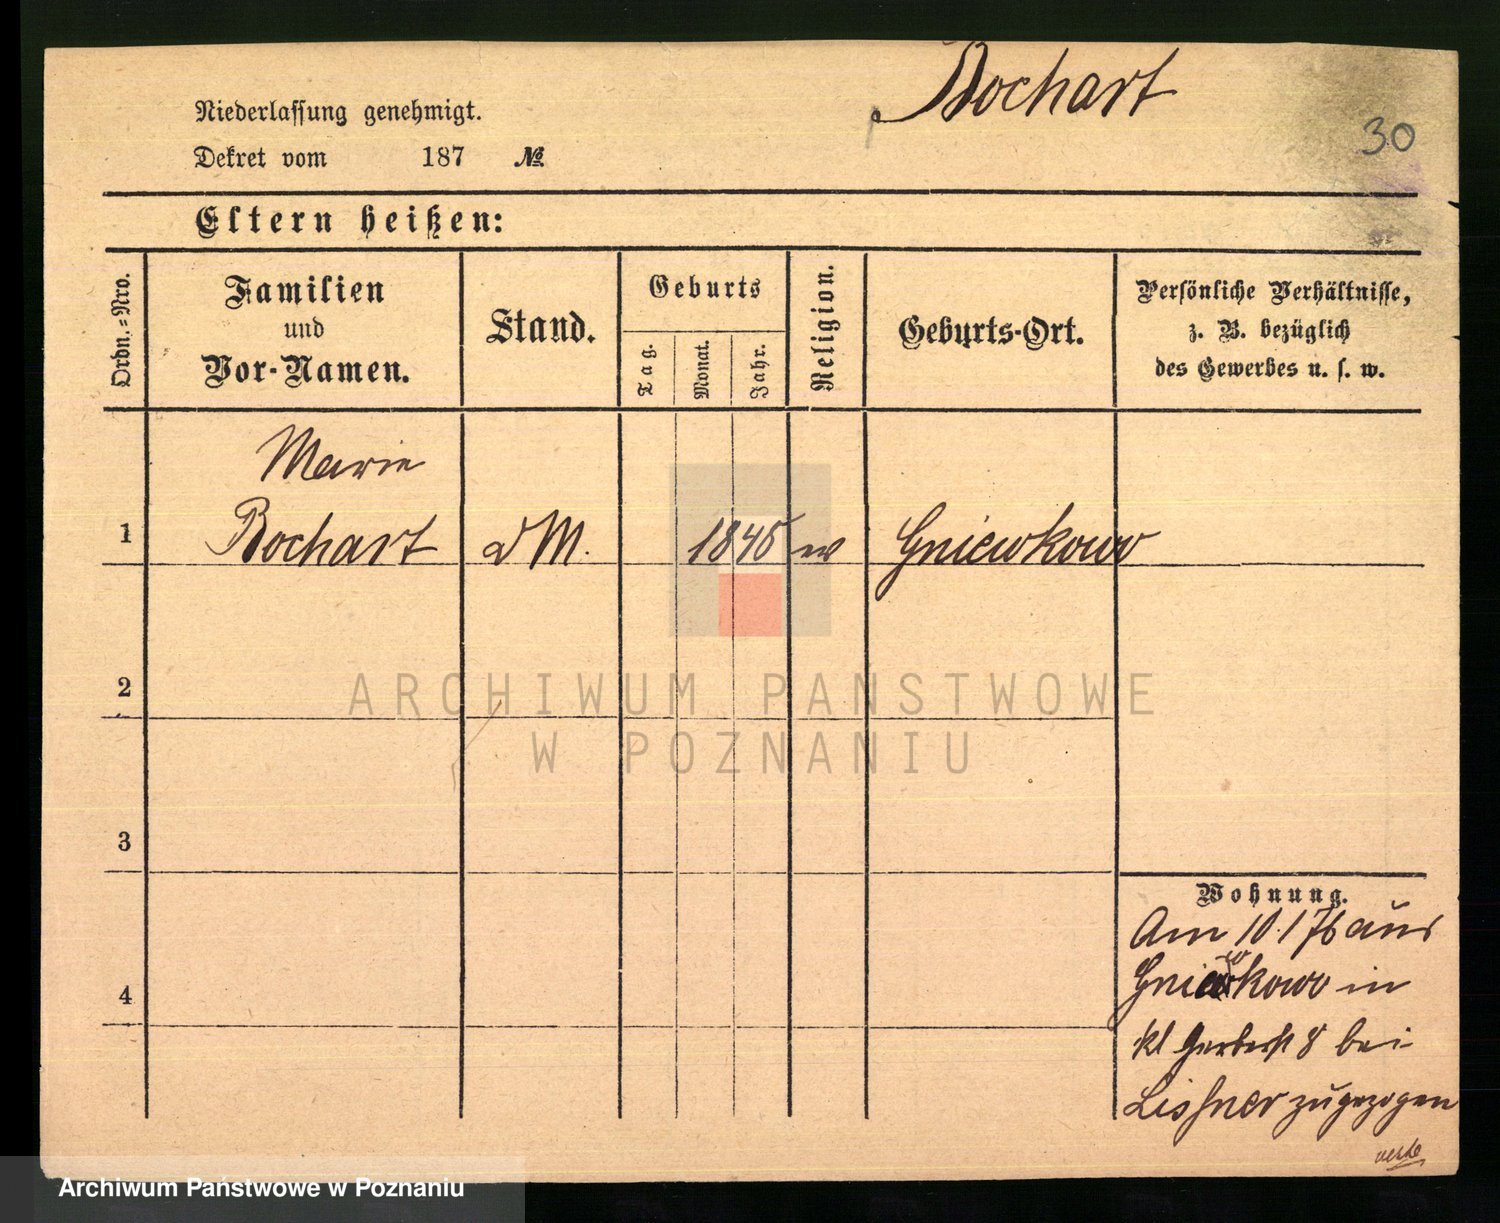 Bochart
30
Niederlassung genehmigt.
Dekret vom 187 №
Eltern heißen:
Ordn.-Nro.
Familien
und
Vor-Namen.
Stand.
Geburts
Tag.
Monat.
Jahr.
Religion.
Geburts-Ort.
Persönliche Verhältnisse,
z. B. bezüglich
des Gewerbes u. s. w.
Marie
1 Bochart dM. 1845 Gniewkowo
2
ARCHIWUM PAŃSTWOWE
W POZNANIU
3
Wohnung.
Am 10.1 76 aus
4 Gniewkowo in
kl Gerberst 8 bei
Lissner zugezogen
Archiwum Państwowe w Poznaniu